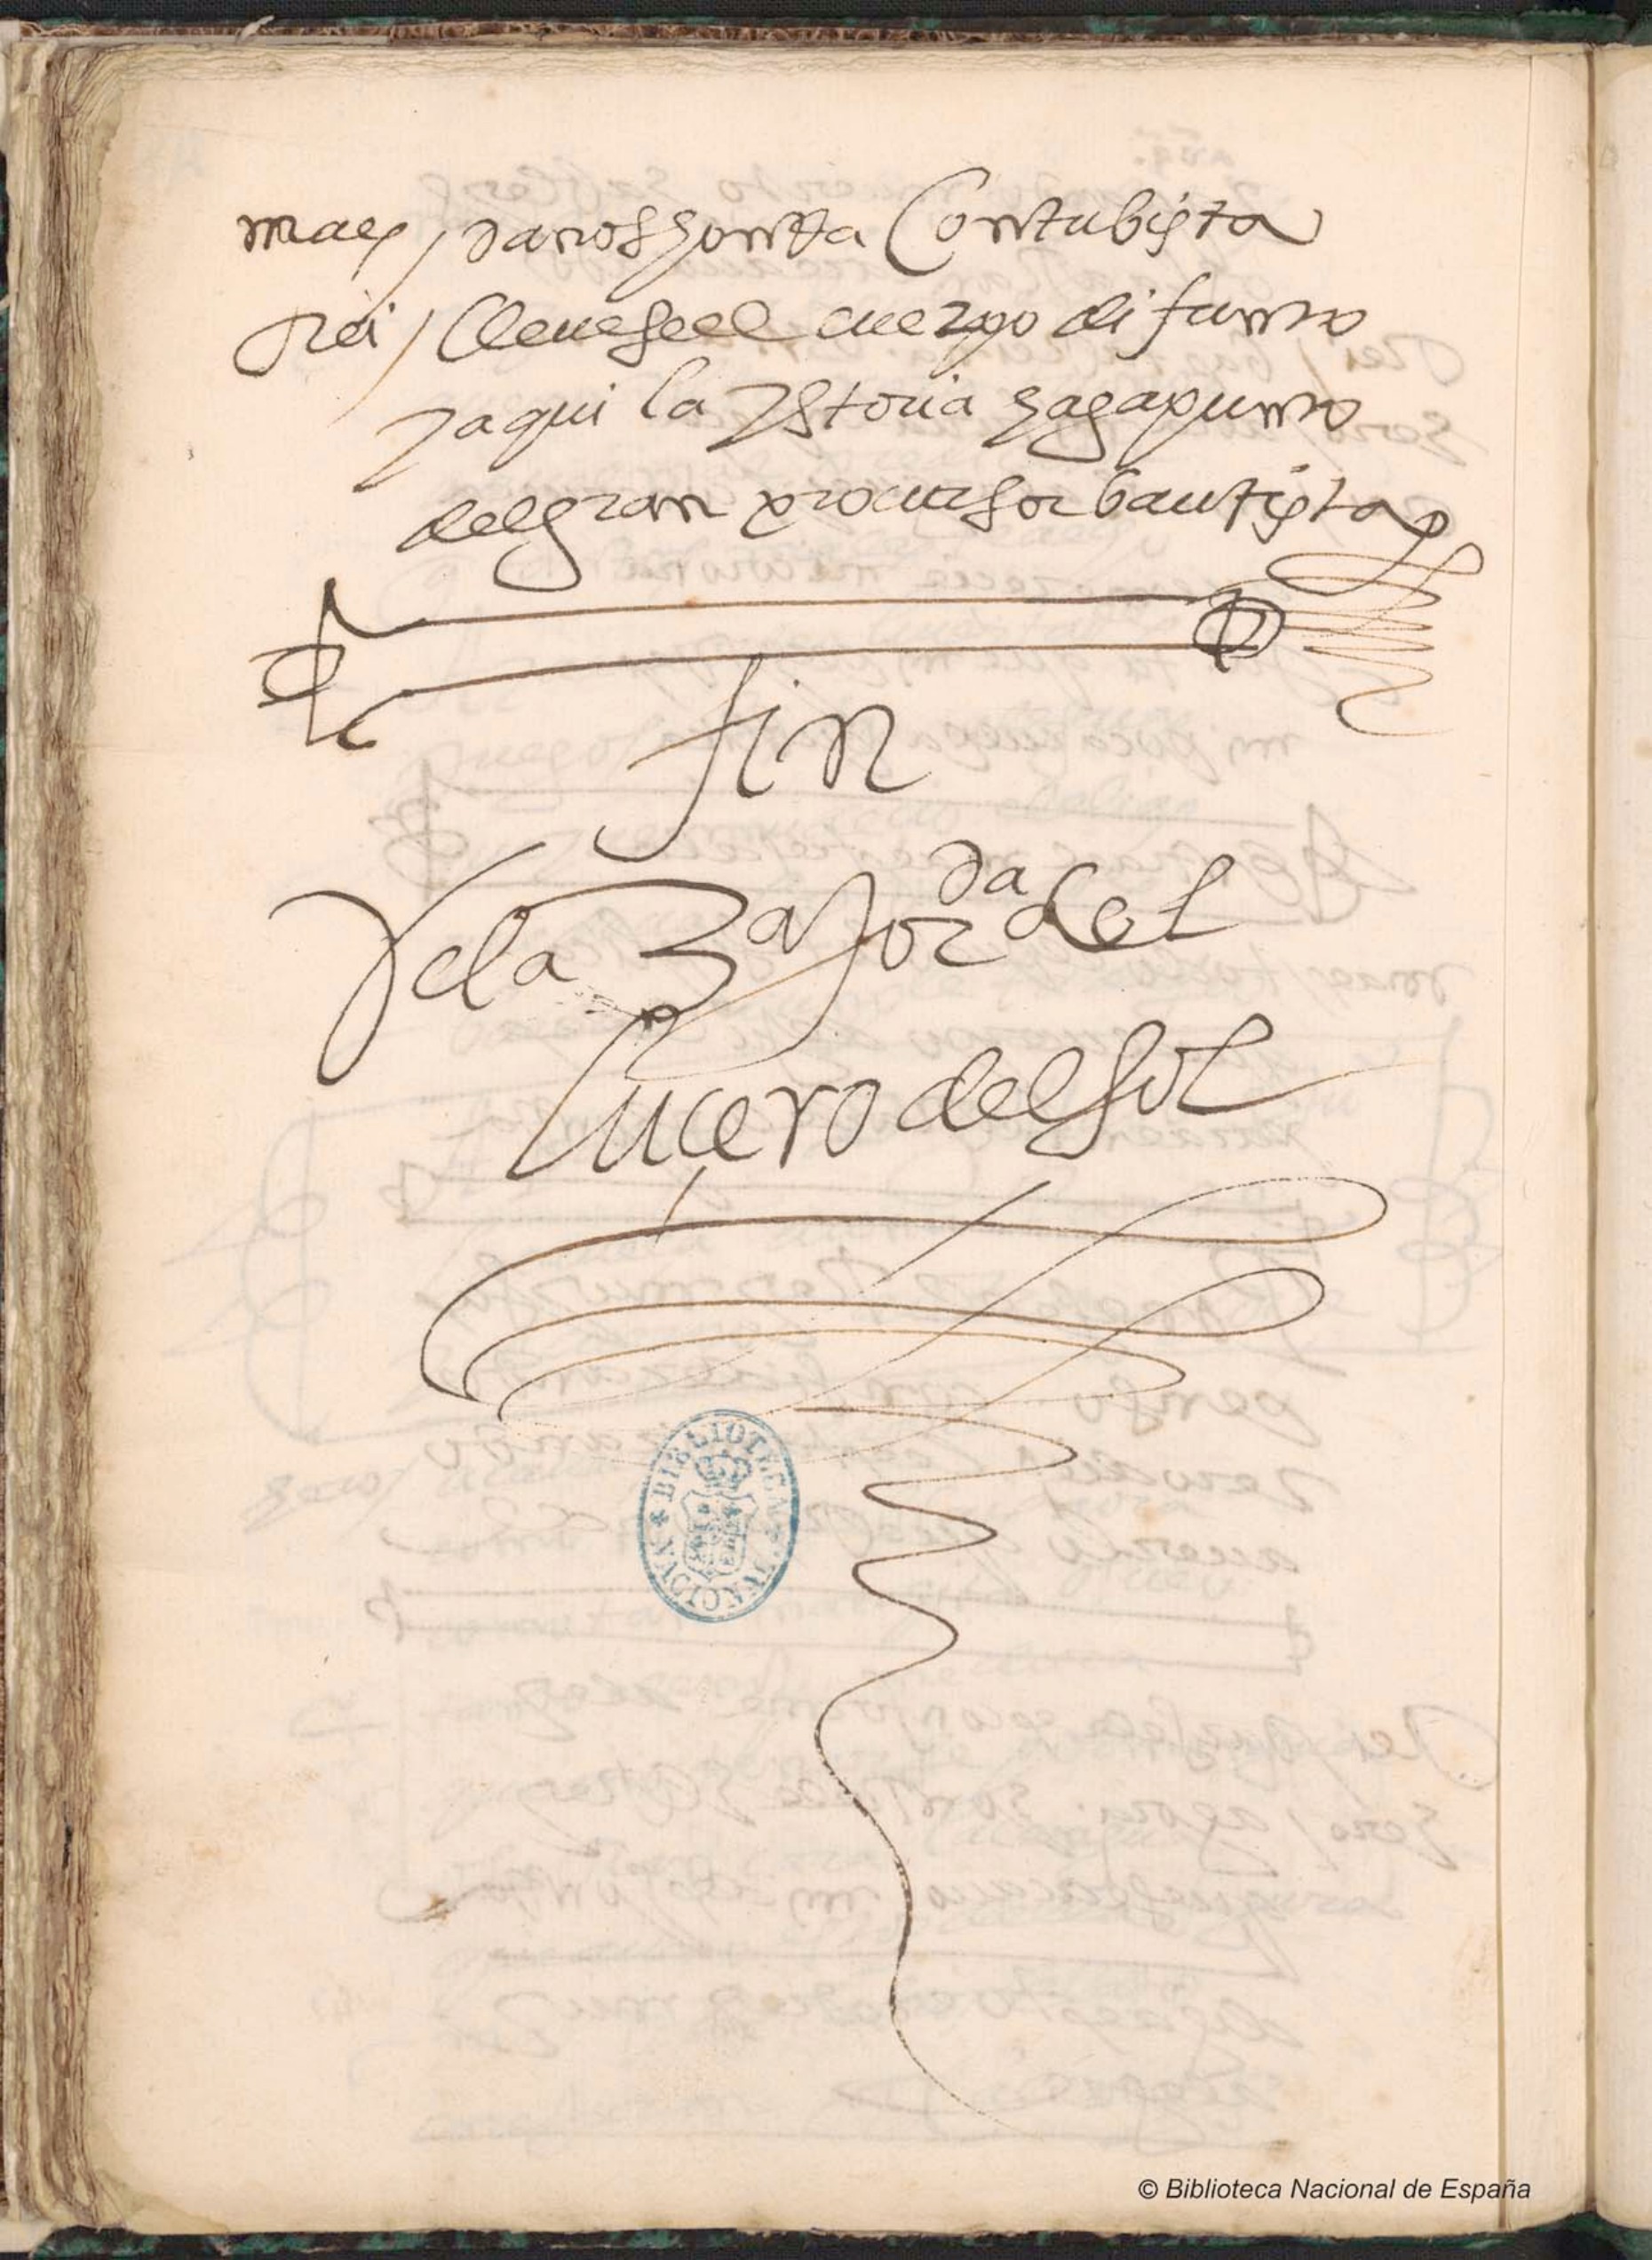 maes / danos honrra Contubista
Rei / lleuese el cuerpo difunto
y aqui la Ystoria haga punto
del gran precursor bautista
fin
De la 3a Jorda del
luçero del sol
BIBLIOTECA NACIONAL
© Biblioteca Nacional de España